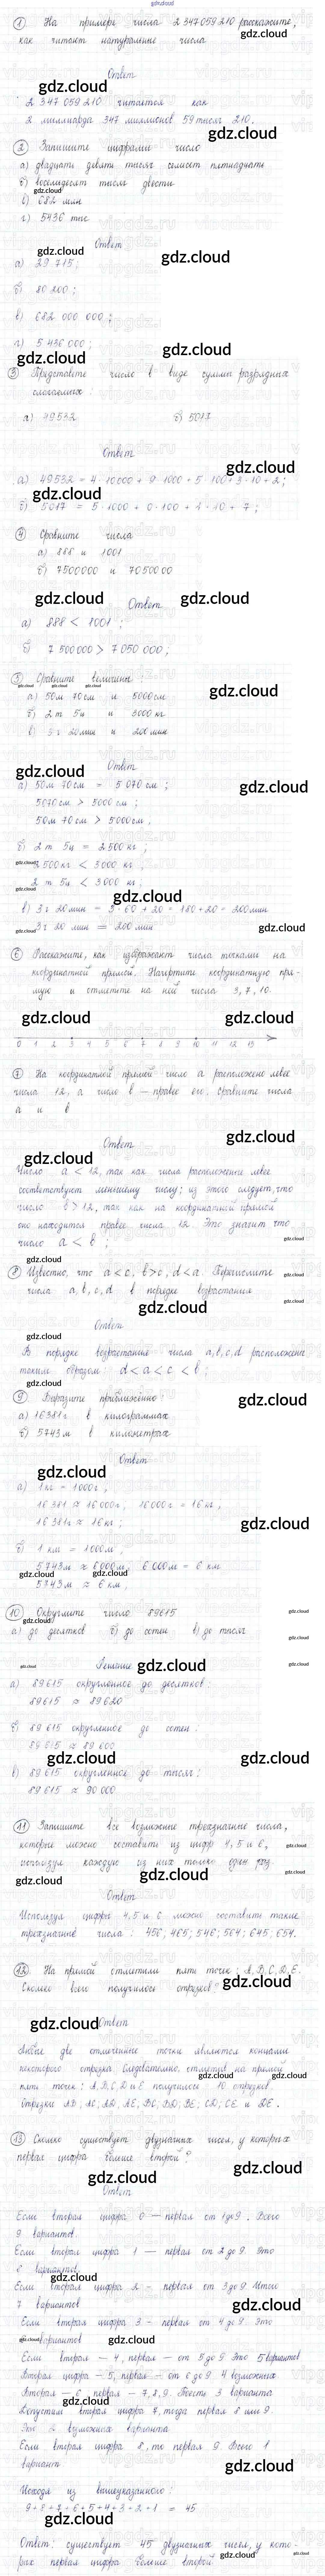 gdz.cloud
1 На примере числа 2 347 059 210 расскажите,
как читают натуральные числа
Ответ
2 347 059 210 читается как
2 миллиарда 347 миллионов 59 тысяч 210.
2 Запишите цифрами число
а) двадцать девять тысяч семьсот пятнадцать
б) восемьдесят тысяч двести
в) 682 млн
г) 5436 тыс
Ответ
а) 29 715;
б) 80 200;
в) 682 000 000;
г) 5 436 000;
3 Представьте число в виде суммы разрядных
слагаемых:
а) 49532 б) 5017
Ответ
а) 49532 = 4·10000 + 9·1000 + 5·100 + 3·10 + 2;
б) 5017 = 5·1000 + 0·100 + 1·10 + 7;
4 Сравните числа
а) 888 и 1001
б) 7500000 и 7050000
Ответ
а) 888 < 1001;
б) 7 500 000 > 7 050 000;
5 Сравните величины:
а) 50м 70см и 5000см
б) 2т 5ц и 3000кг
в) 3г 20мин и 200мин
Ответ
а) 50м 70см = 5 070 см;
5070 см > 5000 см;
50м 70 см > 5000см,
б) 2т 5ц = 2500кг;
2500кг < 3000 кг,
2т 5ц < 3000 кг;
в) 3г 20мин = 3·60 + 20 = 180 + 20 = 200мин
3г 20 мин = 200 мин
6 Расскажите, как изображают числа точками на
координатной прямой. Начертите координатную пря-
мую и отметьте на ней числа 3, 7, 10.
0 1 2 3 4 5 6 7 8 9 10 11 12 13
7 На координатной прямой число а расположено левее
числа 12, а число b — правее его. Сравните числа
а и b
Ответ
Число а < 12, так как числа расположенные левее
соответствуют меньшему числу; из этого следует, что
число b > 12, так как на координатной прямой
оно находится правее числа 12. Это значит что
число а < b;
8 Известно, что а < c, b > c, d < a. Перечислите
числа a, b, c, d в порядке возрастания
Ответ
В порядке возрастания числа a, b, c, d расположены
таким образом: d < a < c < b;
9 Выразите приближённо:
а) 16381г в килограммах
б) 5743м в километрах
Ответ
а) 1кг = 1000г,
16 381 ≈ 16 000г, 16000г = 16кг,
16 381г ≈ 16 кг;
б) 1 км = 1000м,
5743м ≈ 6000м, 6 000м = 6 км
5743м ≈ 6 км,
10 Округлите число 89615
а) до десятков б) до сотен в) до тысяч
Решение
а) 89615 округленное до десятков:
89615 ≈ 89620
б) 89 615 округленное до сотен:
89 615 ≈ 89 600
в) 89 615 округленное до тысяч:
89 615 ≈ 90 000
11 Запишите все возможные трехзначные числа,
которые можно составить из цифр 4, 5 и 6,
используя каждую из них только один раз.
Ответ
Используя цифры 4, 5 и 6 можно составить такие
трехзначные числа: 456, 465; 546; 564; 645; 654.
12 На прямой отметили пять точек: A, B, C, D, E.
Сколько всего получилось отрезков?
Ответ
Любые две отмеченные точки являются концами
некоторого отрезка. Следовательно, отметив на прямой
пять точек: A, B, C, D и E получилось 10 отрезков.
Отрезки AB; AC; AD; AE; BC; BD; BE; CD; CE и DE.
13 Сколько существует двузначных чисел, у которых
первая цифра больше второй?
Ответ
Если вторая цифра 0 — первая от 1 до 9. Всего
9 вариантов.
Если вторая цифра 1 — первая от 2 до 9. Это
8 вариантов.
Если вторая цифра 2 - первая от 3 до 9. Итого
7 вариантов
Если вторая цифра 3 - первая от 4 до 9 Это
вариантов
Если вторая - 4, первая - от 5 до 9 Это 5 вариантов
Вторая цифра - 5, первая - от 6 до 9 4 возможных.
Вторая - 6, первая - 7, 8, 9. То есть 3 варианта
Допустим вторая цифра 7, тогда первая 8 или 9.
Это 2 возможных варианта
Если вторая цифра 8, то первая 9. Всего 1
вариант
Исходя из вышеуказанного:
9+8+7+6+5+4+3+2+1 = 45
Ответ: существует 45 двузначных чисел, у кото-
рых первая цифра больше второй.